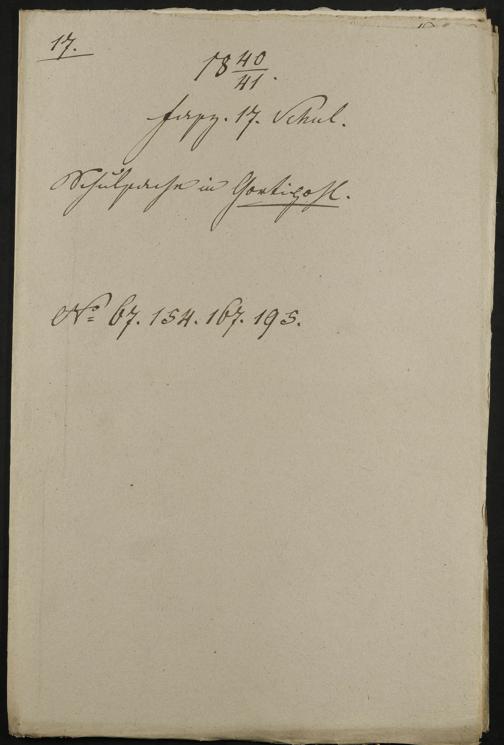 17.
18 40/41.
Fasz. 17. Schul.
Schulsache in Gortipohl.
No 67. 154. 167. 195.